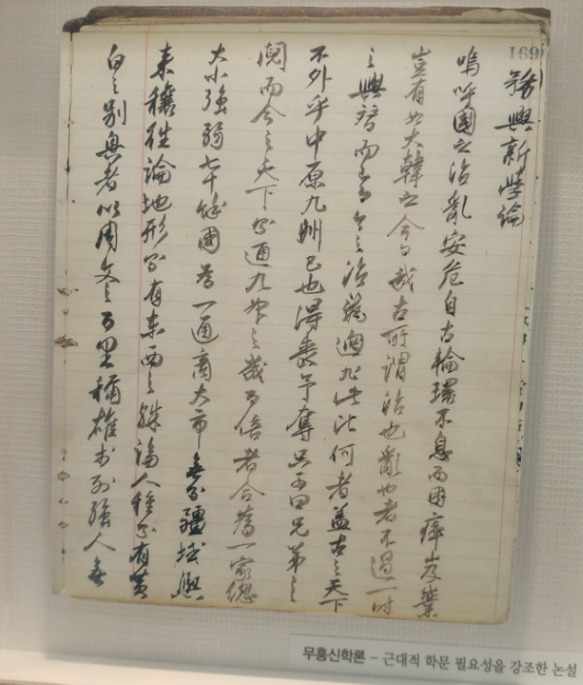 169
務興新學論
嗚呼國之治亂安危自古輪環不息而困瘁岌嶪
豈有如大韓之今日哉古所謂治也亂也者不過一時
之興替而今之治亂何者蓋古之天下
不外乎中原九州已也得喪予奪只可曰兄弟之
鬩而今之天下通九之百倍者合爲一家總
大小強弱七十餘國爲一通商大市無分疆域與
來穰往論地形有東西之殊論人種有黃
白之別與者以周文之百里稱雄於列強人無
무흥신학론 – 근대적 학문 필요성을 강조한 논설